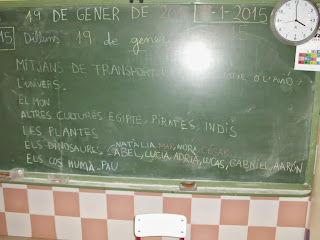 19 DE GENER DE 20
19-1-2015
15
Dilluns 19 de gener
MITJANS DE TRANSPORT O L'AVIÓ?
L'UNIVERS.
EL MÓN
ALTRES CULTURES: EGIPTE, PIRATES, INDIS
LES PLANTES
ELS DINOSAURS. NATALIA MAR, NORA, CÉSAR
ABEL, LUCIA, ADRIÀ, LUCAS, GABRIEL, AARÓN
ELS COS HUMÀ. PAU